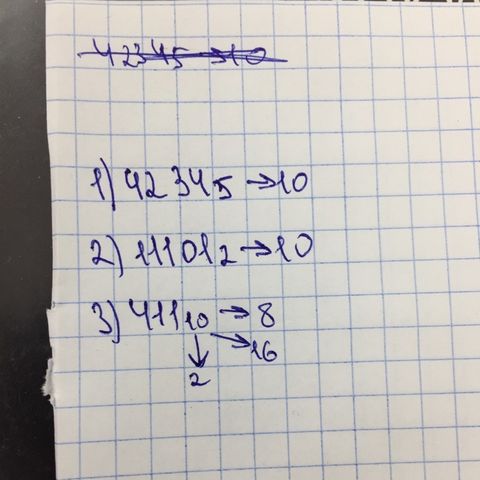 42345 → 10
1) 4234₅ → 10
2) 11101₂ → 10
3) 411₁₀ → 8
→ 16
↓
2